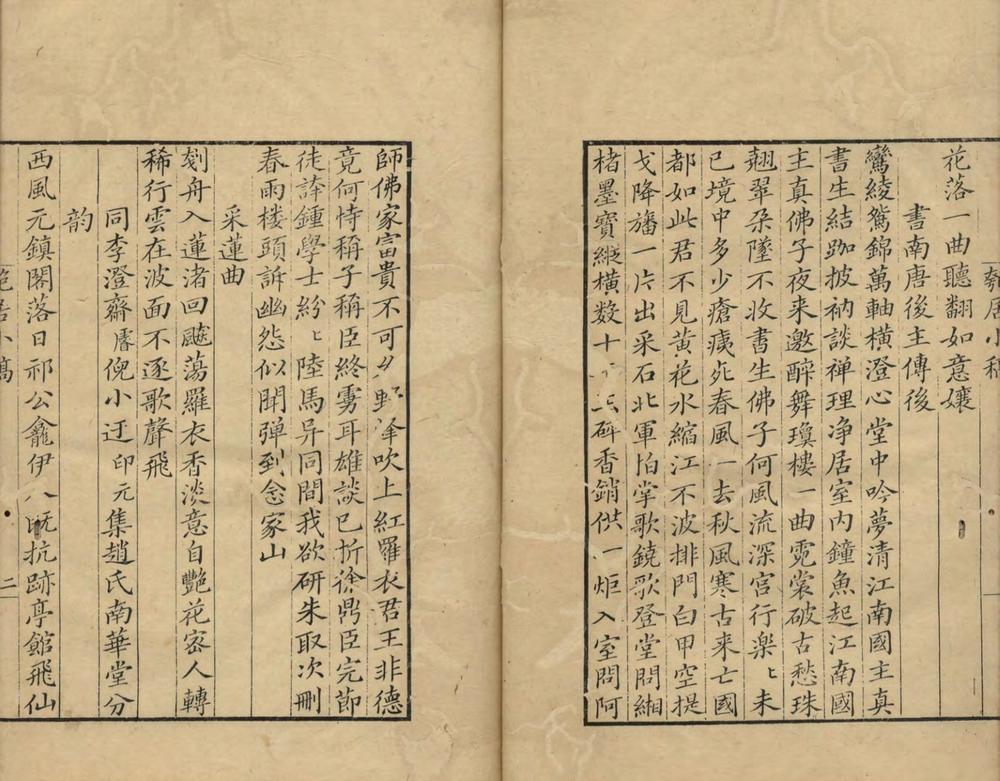 花落一曲聽翻如意孃
書南唐後主傳後
鸞綾鴛錦萬軸橫澄心堂中吟夢清江南國主真
書生結跏披衲談禅理净居室內鐘魚起江南國
主真佛子夜来邀醉舞瓊樓一曲霓裳破古愁珠
翹翠朶墜不收書生佛子何風流深宮行楽〻未
已境中多少瘡痍死春風一去秋風寒古来亡國
都如此君不見黄花水縮江不波排門白甲空提
戈降旛一片出采石北軍怕掌歌鐃歌登堂問緗
楮墨寶縱橫数十碎香銷供一炬入室問阿
師佛家富貴不可吹上紅羅衣君王非德
竟何恃稱子稱臣終雱耳雄談已折徐鼎臣完節
徒誇鍾學士紛〻陸馬异同間我欲研朱取次刪
春雨楼頭訴幽怨似聞弹到念家山
采蓮曲
剡舟入蓮渚回飇蕩羅衣香淡意自艷花密人轉
稀行雲在波面不逐歌聲飛
同李澄齋倪小迂印元集趙氏南華堂分
韵
西風元鎮閣落日祁公龕伊八既抗跡亭館飛仙
二